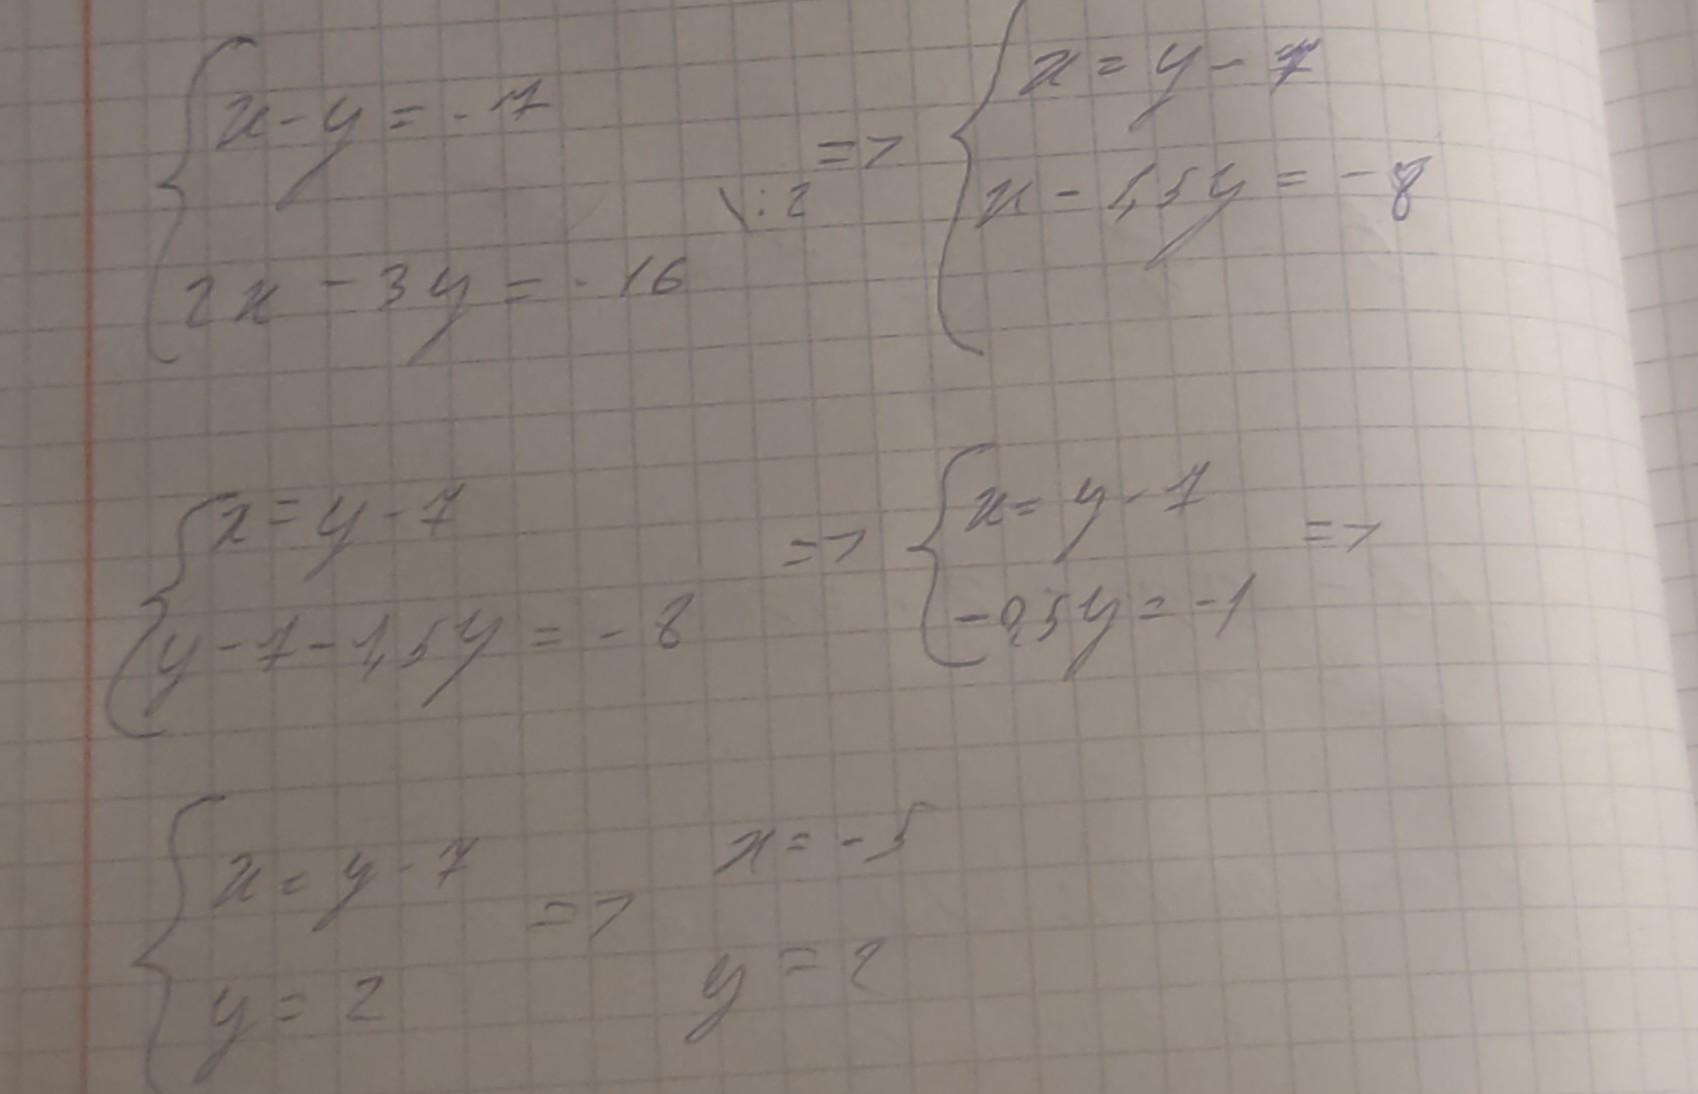 x - y = -7
2x - 3y = -16 \:2 =>
x = y - 7
x - 1,5y = -8
x = y - 7
y - 7 - 1,5y = -8 =>
x = y - 7
-0,5y = -1 =>
x = y - 7
y = 2 =>
x = -5
y = 2